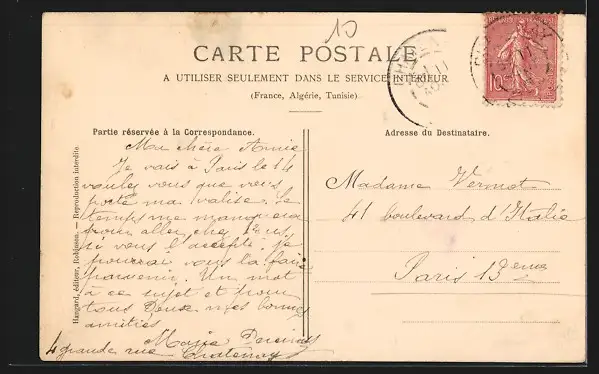 10
CARTE POSTALE
A UTILISER SEULEMENT DANS LE SERVICE INTÉRIEUR
(France, Algérie, Tunisie)
Partie réservée à la Correspondance.
Ma chère Amie
Je vais à Paris le 14
voulez vous que vous
porte ma valise. Le
temps me manquera
pour aller chez
si vous l'accepté. je
pourrai vous la faire
parvenir. Un mot
à ce sujet et pour
tous Deux mes bonnes
amitiés
Marie
4 grande rue Chatenay
Adresse du Destinataire.
Madame Vermot
41 boulevard d'Italie
Paris 13eme
Hangard, éditeur, Robinson. — Reproduction interdite
10